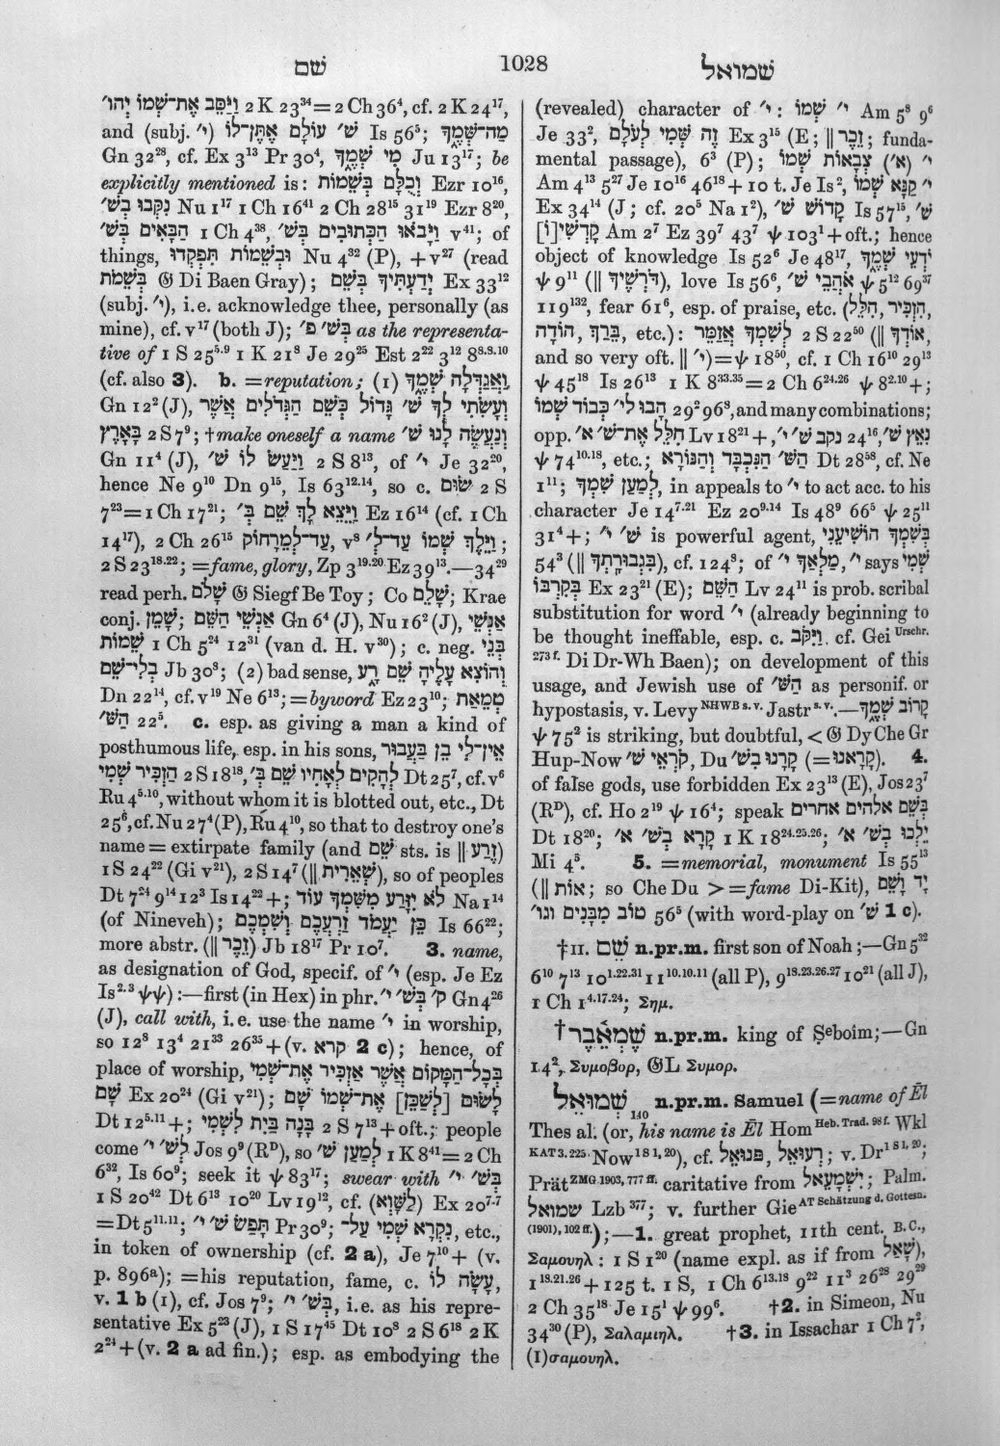 שׁם
1028
שׁמואל
וַיַּסֵּב אֶת־שְׁמוֹ יְהוֹ׳ 2 K 23³⁴ = 2 Ch 36⁴, cf. 2 K 24¹⁷,
and (subj. י׳) שׁ׳ עוֹלָם אֶתֶּן־לוֹ Is 56⁵; מַה־שְּׁמֶךָ
Gn 32²⁸, cf. Ex 3¹³ Pr 30⁴, מִי שְׁמֶךָ Ju 13¹⁷; be
explicitly mentioned is: וְכֻלָּם בְּשֵׁמוֹת Ezr 10¹⁶,
נִקְּבוּ בְשׁ׳ Nu 1¹⁷ 1 Ch 16⁴¹ 2 Ch 28¹⁵ 31¹⁹ Ezr 8²⁰,
הַבָּאִים בְּשׁ׳ 1 Ch 4³⁸, וַיָּבֹאוּ הַכְּתוּבִים בְּשׁ׳ v⁴¹; of
things, וּבְשֵׁמוֹת תִּפְקְדוּ Nu 4³² (P), + v²⁷ (read
בְּשֵׁמֹת 𝔊 Di Baen Gray); יְדַעְתִּיךָ בְשֵׁם Ex 33¹²
(subj. י׳), i.e. acknowledge thee, personally (as
mine), cf. v¹⁷ (both J); בְּשׁ׳ פ׳ as the representa-
tive of 1 S 25⁵·⁹ 1 K 21⁸ Je 29²⁵ Est 2²² 3¹² 8⁸·⁸·¹⁰
(cf. also 3). b. = reputation; (1) וַאֲגַדְּלָה שְׁמֶךָ
Gn 12² (J), וְעָשִׂתִי לְךָ שׁ׳ גָּדוֹל כְּשֵׁם הַגְּדֹלִים אֲשֶׁר
בָּאָרֶץ 2 S 7⁹; †make oneself a name וְנַעֲשֶׂה לָּנוּ שׁ׳
Gn 11⁴ (J), וַיַּעַשׂ לוֹ שׁ׳ 2 S 8¹³, of י׳ Je 32²⁰,
hence Ne 9¹⁰ Dn 9¹⁵, Is 63¹²·¹⁴, so c. שׂוּם 2 S
7²³ = 1 Ch 17²¹; וַיֵּצֵא לָךְ שֵׁם בְּ׳ Ez 16¹⁴ (cf. 1 Ch
14¹⁷), 2 Ch 26¹⁵ עַד־לְמֵרָחוֹק, v⁸ וַיֵּלֶךְ שְׁמוֹ עַד־לְ׳;
2 S 23¹⁸·²²; = fame, glory, Zp 3¹⁹·²⁰ Ez 39¹³.—34²⁹
read perh. שָׁלֹם 𝔊 Siegf Be Toy; Co שָׁלֵם; Krae
conj. שָׁמֵן; אַנְשֵׁי הַשֵּׁם Gn 6⁴ (J), Nu 16² (J), אַנְשֵׁי
שֵׁמוֹת 1 Ch 5²⁴ 12³¹ (van d. H. v³⁰); c. neg. בְּנֵי
בְלִי־שֵׁם Jb 30⁸; (2) bad sense, וְהוֹצִא עָלֶיהָ שֵׁם רָע
Dn 22¹⁴, cf. v¹⁹ Ne 6¹³; = byword Ez 23¹⁰; טְמֵאַת
הַשּׁ׳ 22⁵. c. esp. as giving a man a kind of
posthumous life, esp. in his sons, אֵין־לִי בֵן בַּעֲבוּר
הַזְכִּיר שְׁמִי 2 S 18¹⁸, לְהָקִים לְאָחִיו שֵׁם בְּ׳ Dt 25⁷, cf. v⁶
Ru 4⁵·¹⁰, without whom it is blotted out, etc., Dt
25⁶, cf. Nu 27⁴ (P), Ru 4¹⁰, so that to destroy one's
name = extirpate family (and שֵׁם sts. is ∥ זֶרַע)
1 S 24²² (Gi v²¹), 2 S 14⁷ (∥ שְׁאֵרִית), so of peoples
Dt 7²⁴ 9¹⁴ 12³ Is 14²² +; לֹא יִזָּרַע מִשִּׁמְךָ עוֹד Na 1¹⁴
(of Nineveh); כֵּן יַעֲמֹד זַרְעֲכֶם וְשִׁמְכֶם Is 66²²;
more abstr. (∥ זֵכֶר) Jb 18¹⁷ Pr 10⁷. 3. name,
as designation of God, specif. of י׳ (esp. Je Ez
Is²·³ ψψ):—first (in Hex) in phr. ק׳ בְּשׁ׳ י׳ Gn 4²⁶
(J), call with, i.e. use the name י׳ in worship,
so 12⁸ 13⁴ 21³³ 26²⁵ + (v. קרא 2 c); hence, of
place of worship, בְּכָל־הַמָּקוֹם אֲשֶׁר אַזְכִּיר אֶת־שְׁמִי
Ex 20²⁴ (Gi v²¹); לָשׂוּם [לְשַׁכֵּן] אֶת־שְׁמוֹ שָׁם
Dt 12⁵·¹¹ +; בָּנָה בַיִת לִשְׁמִי 2 S 7¹³ + oft.; people
come לְשׁ׳ י׳ Jos 9⁹ (Rᴰ), so לְמַעַן שׁ׳ 1 K 8⁴¹ = 2 Ch
6³², Is 60⁹; seek it ψ 83¹⁷; swear with בְּשׁ׳ י׳
1 S 20⁴² Dt 6¹³ 10²⁰ Lv 19¹², cf. (לַשָּׁוְא) Ex 20⁷·⁷
= Dt 5¹¹·¹¹; תָּפַשׂ שׁ׳ י׳ Pr 30⁹; נִקְרָא שְׁמִי עַל־, etc.,
in token of ownership (cf. 2 a), Je 7¹⁰ + (v.
p. 896ᵃ); = his reputation, fame, c. עָשָׂה לוֹ,
v. 1 b (1), cf. Jos 7⁹; בְּשׁ׳ י׳, i.e. as his repre-
sentative Ex 5²³ (J), 1 S 17⁴⁵ Dt 10⁸ 2 S 6¹⁸ 2 K
2²⁴ + (v. 2 a ad fin.); esp. as embodying the
(revealed) character of י׳: י׳ שְׁמוֹ Am 5⁸ 9⁶
Je 33², זֶה שְּׁמִי לְעֹלָם Ex 3¹⁵ (E; ∥ זֵכֶר; funda-
mental passage), 6³ (P); י׳ (א׳) צְבָאוֹת שְׁמוֹ
Am 4¹³ 5²⁷ Je 10¹⁶ 46¹⁸ + 10 t. Je Is², י׳ קַנָּא שְׁמוֹ
Ex 34¹⁴ (J; cf. 20⁵ Na 1²), קָדוֹשׁ שׁ׳ Is 57¹⁵, שׁ׳
קָדְשִׁי[וֹ] Am 2⁷ Ez 39⁷ 43⁷ ψ 103¹ + oft.; hence
object of knowledge Is 52⁶ Je 48¹⁷, יֹדְעֵי שְׁמֶךָ
ψ 9¹¹ (∥ דֹּרְשֶׁיךָ), love Is 56⁶, אֹהֲבֵי שׁ׳ ψ 5¹² 69³⁷
119¹³², fear 61⁶, esp. of praise, etc. (הִזְכִּיר, הִלֵּל,
הוֹדָה, בֵּרַךְ, etc.): לְשִׁמְךָ אֲזַמֵּר 2 S 22⁵⁰ (∥ אוֹדְךָ,
and so very oft. ∥ י׳) = ψ 18⁵⁰, cf. 1 Ch 16¹⁰ 29¹³
ψ 45¹⁸ Is 26¹³ 1 K 8³³·³⁵ = 2 Ch 6²⁴·²⁶ ψ 8²·¹⁰ +;
הבו לי׳ כְּבוֹד שְׁמוֹ 29² 96⁸, and many combinations;
opp. חִלֵּל אֶת־שׁ׳ א׳ Lv 18²¹ +, נקב שׁ׳ י׳ 24¹⁶, נִאֵץ שׁ׳
ψ 74¹⁰·¹⁸, etc.; הַשּׁ׳ הַנִּכְבָּד וְהַנּוֹרָא Dt 28⁵⁸, cf. Ne
1¹¹; לְמַעַן שִׁמְךָ, in appeals to י׳ to act acc. to his
character Je 14⁷·²¹ Ez 20⁹·¹⁴ Is 48⁹ 66⁵ ψ 25¹¹
31⁴ +; שׁ׳ י׳ is powerful agent, בְּשִׁמְךָ הוֹשִׁיעֵנִי
54³ (∥ בִּגְבוּרָתְךָ), cf. 124⁸; of מַלְאַךְ י׳, י׳ says שְׁמִי
בְּקִרְבּוֹ Ex 23²¹ (E); הַשֵּׁם Lv 24¹¹ is prob. scribal
substitution for word י׳ (already beginning to
be thought ineffable, esp. c. וַיִּקֹּב. cf. Gei Urschr.
273 f. Di Dr-Wh Baen); on development of this
usage, and Jewish use of הַשּׁ׳ as personif. or
hypostasis, v. Levy NHWB s. v. Jastr s. v.—קָרוֹב שְׁמֶךָ
ψ 75² is striking, but doubtful, < 𝔊 Dy Che Gr
Hup-Now קֹרְאֵי שׁ׳, Du קָרֻנוּ בִשׁ׳ (= קְרָאנוּ). 4.
of false gods, use forbidden Ex 23¹³ (E), Jos 23⁷
(Rᴰ), cf. Ho 2¹⁹ ψ 16⁴; speak בְּשֵׁם אלהים אחרים
Dt 18²⁰; קָרָא בְשׁ׳ א׳ 1 K 18²⁴·²⁵·²⁶; יֵלְכוּ בְשׁ׳ א׳
Mi 4⁵. 5. = memorial, monument Is 55¹³
(∥ אוֹת; so Che Du > = fame Di-Kit), יָד וָשֵׁם
טוֹב מִבָּנִים וגו׳ 56⁵ (with word-play on שׁ׳ 1 c).
†II. שֵׁם n.pr.m. first son of Noah;—Gn 5³²
6¹⁰ 7¹³ 10¹·²²·³¹ 11¹⁰·¹⁰·¹¹ (all P), 9¹⁸·²³·²⁶·²⁷ 10²¹ (all J),
1 Ch 1⁴·¹⁷·²⁴; Σημ.
†שֶׁמְאֵבֶר n.pr.m. king of Ṣeboim;—Gn
14², Συμοβορ, 𝔊L Συμορ.
שְׁמוּאֵל 140 n.pr.m. Samuel (= name of Ēl
Thes al. (or, his name is Ēl Hom Heb. Trad. 98 f. Wkl
KAT 3. 225 Now 1 S 1, 20), cf. פְּנוּאֵל, רְעוּאֵל; v. Dr 1 S 1, 20;
Prät ZMG 1903, 777 ff. caritative from יִשְׁמָעֵאל; Palm.
שמואל Lzb 377; v. further Gie AT Schätzung d. Gottesn.
(1901), 102 ff.);—1. great prophet, 11th cent. B.C.,
Σαμουηλ: 1 S 1²⁰ (name expl. as if from שָׁאַל),
1¹⁸·²¹·²⁶ + 125 t. 1 S, 1 Ch 6¹³·¹⁸ 9²² 11³ 26²⁸ 29²⁹
2 Ch 35¹⁸ Je 15¹ ψ 99⁶. †2. in Simeon, Nu
34³⁰ (P), Σαλαμιηλ. †3. in Issachar 1 Ch 7²,
(Ι)σαμουηλ.